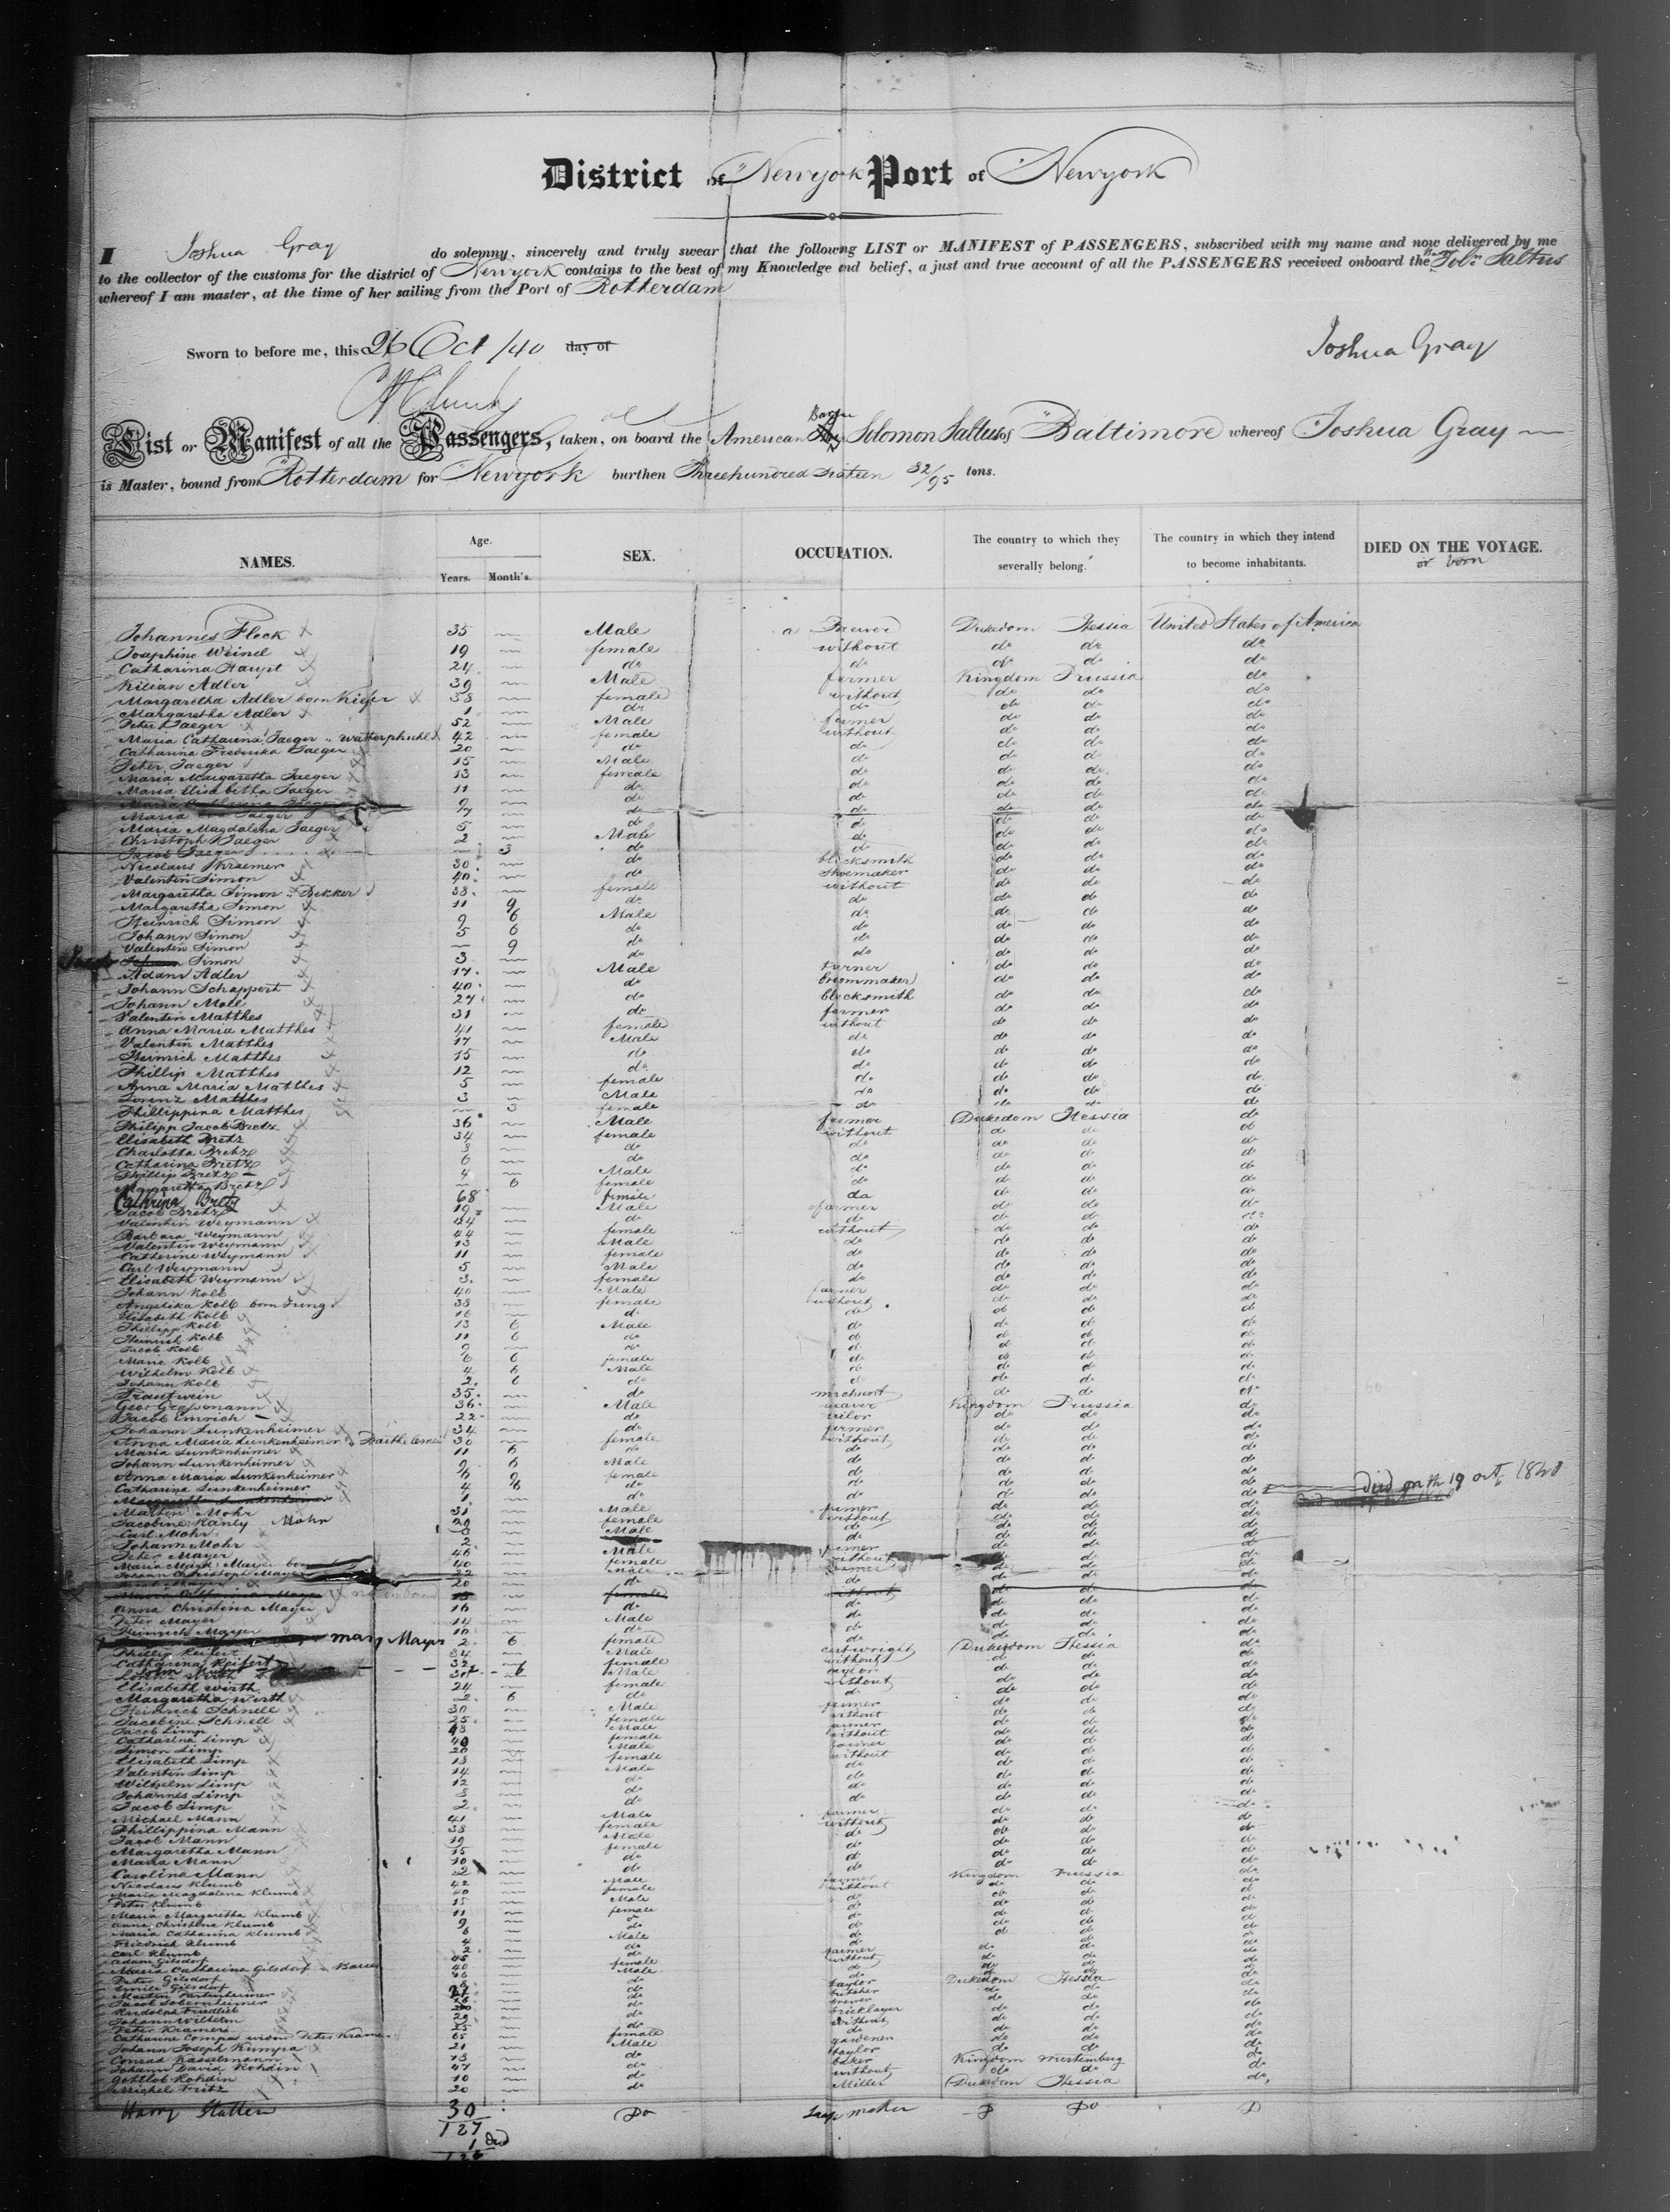 District of Newyork Port of Newyork
I Joshua Gray do solemny, sincerely and truly swear that the following LIST or MANIFEST of PASSENGERS, subscribed with my name and now delivered by me
to the collector of the customs for the district of Newyork contains to the best of my Knowledge and belief, a just and true account of all the PASSENGERS received onboard the Sol: Saltus
whereof I am master, at the time of her sailing from the Port of Rotterdam
Sworn to before me, this 26 Oct /40 day of
Joshua Gray
List or Manifest of all the Passengers, taken, on board the American Barque Solomon Saltus of Baltimore whereof Joshua Gray
is Master, bound from Rotterdam for Newyork burthen Threehundred Sixteen 32/95 tons.
NAMES. Age. Years. Month's. SEX. OCCUPATION. The country to which they severally belong. The country in which they intend to become inhabitants. DIED ON THE VOYAGE. or born
Johannes Fleck 35 Male a Brewer Dukedom Hessia United States of America
Josephine Weinel 19 female without do do do
Catharina Haupt 24 do do do do do
Kilian Adler 39 Male farmer Kingdom Prussia do
Margaretha Adler born Kiefer 38 female without do do do
Margaretha Adler 1 do do do do do
Peter Jaeger 52 Male farmer do do do
Maria Catharina Jaeger 42 female without do do do
Catharina Frederika Jaeger 20 do do do do do
Peter Jaeger 15 Male do do do do
Maria Margaretha Jaeger 13 female do do do do
Maria Elisabetha Jaeger 11 do do do do do
Maria Catharina Jaeger 9 do do do do do
Maria Eva Jaeger 7 do do do do do
Maria Magdalena Jaeger 5 do do do do do
Christoph Jaeger 2 Male do do do do
Jacob Jaeger 3 do do do do do
Nicolaus Kraemer 30 do blacksmith do do do
Valentin Simon 40 do shoemaker do do do
Margaretha Simon Bekker 38 female without do do do
Margaretha Simon 11 9 do do do do do
Heinrich Simon 9 6 Male do do do do
Johann Simon 5 6 do do do do do
Valentin Simon 9 do do do do do
Simon 3 do do do do do
Adam Adler 17 Male turner do do do
Johann Schappert 40 do broommaker do do do
Johann Moll 27 do blacksmith do do do
Valentin Matthes 31 do farmer do do do
Anna Maria Matthes 41 female without do do do
Valentin Matthes 17 Male do do do do
Heinrich Matthes 15 do do do do do
Phillip Matthes 12 do do do do do
Anna Maria Matthes 5 female do do do do
Lorenz Matthes 3 Male do do do do
Phillippina Matthes 3 female do do do do
Philipp Jacob Bretz 36 Male farmer Dukedom Hessia do
Elisabeth Bretz 34 female without do do do
Charlotta Bretz 8 do do do do do
Catharina Bretz 6 do do do do do
Phillip Bretz 4 Male do do do do
Margaretha Bretz 6 female do do do do
Cathrina Bretz 68 female do do do do
Jacob Bretz 19 Male farmer do do do
Valentin Weymann 44 do do do do do
Barbara Weymann 44 female without do do do
Valentin Weymann 13 Male do do do do
Catherine Weymann 11 female do do do do
Carl Weymann 5 Male do do do do
Elisabeth Weymann 3 female do do do do
Johann Kolb 40 Male farmer do do do
Angelika Kolb born Jung 38 female without do do do
Elisabeth Kolb 16 do do do do do
Phillipp Kolb 13 6 Male do do do do
Heinrich Kolb 11 6 do do do do do
Jacob Kolb 9 do do do do do
Marie Kolb 6 6 female do do do do
Wilhelm Kolb 4 6 Male do do do do
Johann Kolb 2 6 do do do do do
Trautwein 35 do merchant do do do
Geor Grossmann 36 Male Kingdom Prussia do
Jacob Emrich 22 do do do do
Johann Lunkenheimer 34 do farmer do do do
Anna Maria Lunkenheimer 30 female without do do do
Maria Lunkenheimer 11 6 do do do do do
Johann Lunkenheimer 9 6 Male do do do do
Anna Maria Lunkenheimer 6 9 female do do do do
Catharina Lunkenheimer 4 6 do do do do do
Margaretha Lunkenheimer 1 do do do do do died on the 19 oct 1840
Marten Mohr 31 Male farmer do do do
Jacobine Kanly Mohr 29 female without do do do
Carl Mohr Male do do do do
Johann Mohr 2
Peter Mayer 46 Male farmer do do do
40 female without do do do
Johann Christoph Mayer 22 Male farmer do do do
20 do
female without do do do
Anna Christina Mayer 16 do do do do do
Peter Mayer 14 Male do do do do
Heinrich Mayer 10 do do do do do
mary Mayer 2 6 female do do do do
Phillip Keifert 34 Male cartwright Dukedom Hessia do
Catharina Keifert 32 female without do do do
Wirth Male taylor do do do
Elisabeth Wirth 24 female without do do do
Margaretha Wirth 2 6 do do do do do
Heinrich Schnell 30 Male farmer do do do
Jacobine Schnell 25 female without do do do
Jacob Limp 48 Male farmer do do do
Catharina Limp 40 female without do do do
Simon Limp 20 Male farmer do do do
Elisabeth Limp 18 female without do do do
Valentin Limp 14 Male do do do do
Wilhelm Limp 12 do do do do do
Johannes Limp 8 do do do do do
Jacob Limp 2 do do do do do
Michael Mann 41 Male farmer do do do
Phillippina Mann 38 female without do do do
Jacob Mann 19 Male do do do do
Margaretha Mann 15 female do do do do
Maria Mann 10 do do do do do
Carolina Mann 2 do do do do do
Nicolaus Klumb 42 Male farmer Kingdom Prussia do
Maria Magdalena Klumb 40 female without do do do
Peter Klumb 15 Male do do do do
Maria Margaretha Klumb 11 female do do do do
Anna Christina Klumb 9 do do do do do
Maria Catharina Klumb 6 do do do do do
Friedrich Klumb 4 Male do do do do
Carl Klumb 2 do do do do do
Adam Gilsdorf 45 do farmer do do do
Maria Catharina Gilsdorf 40 female without do do do
Peter Gilsdorf Male do do do do
Emile Gilsdorf do do
Martin Partenheimer do taylor Dukedom Hessia do
Jacob Sobernheimer do butcher do do do
Rudolph Friedlieb do brewer do do do
Johann Wilhelm 29 do bricklayer do do do
Peter Kramer 25 do without do do do
Catharine widow Peter Kramer 65 female do do do do
Johann Joseph Kumpa 21 Male gardener do do do
Conrad Kasselmann 18 do taylor do do do
Johann David Kohdin 47 do baker Kingdom Wurtemberg do
Gottlob Kohdin 10 do without do do do
Michel Fritz 20 do Miller Dukedom Hessia do
Harry 30 Do maker Do
127
1 died
126